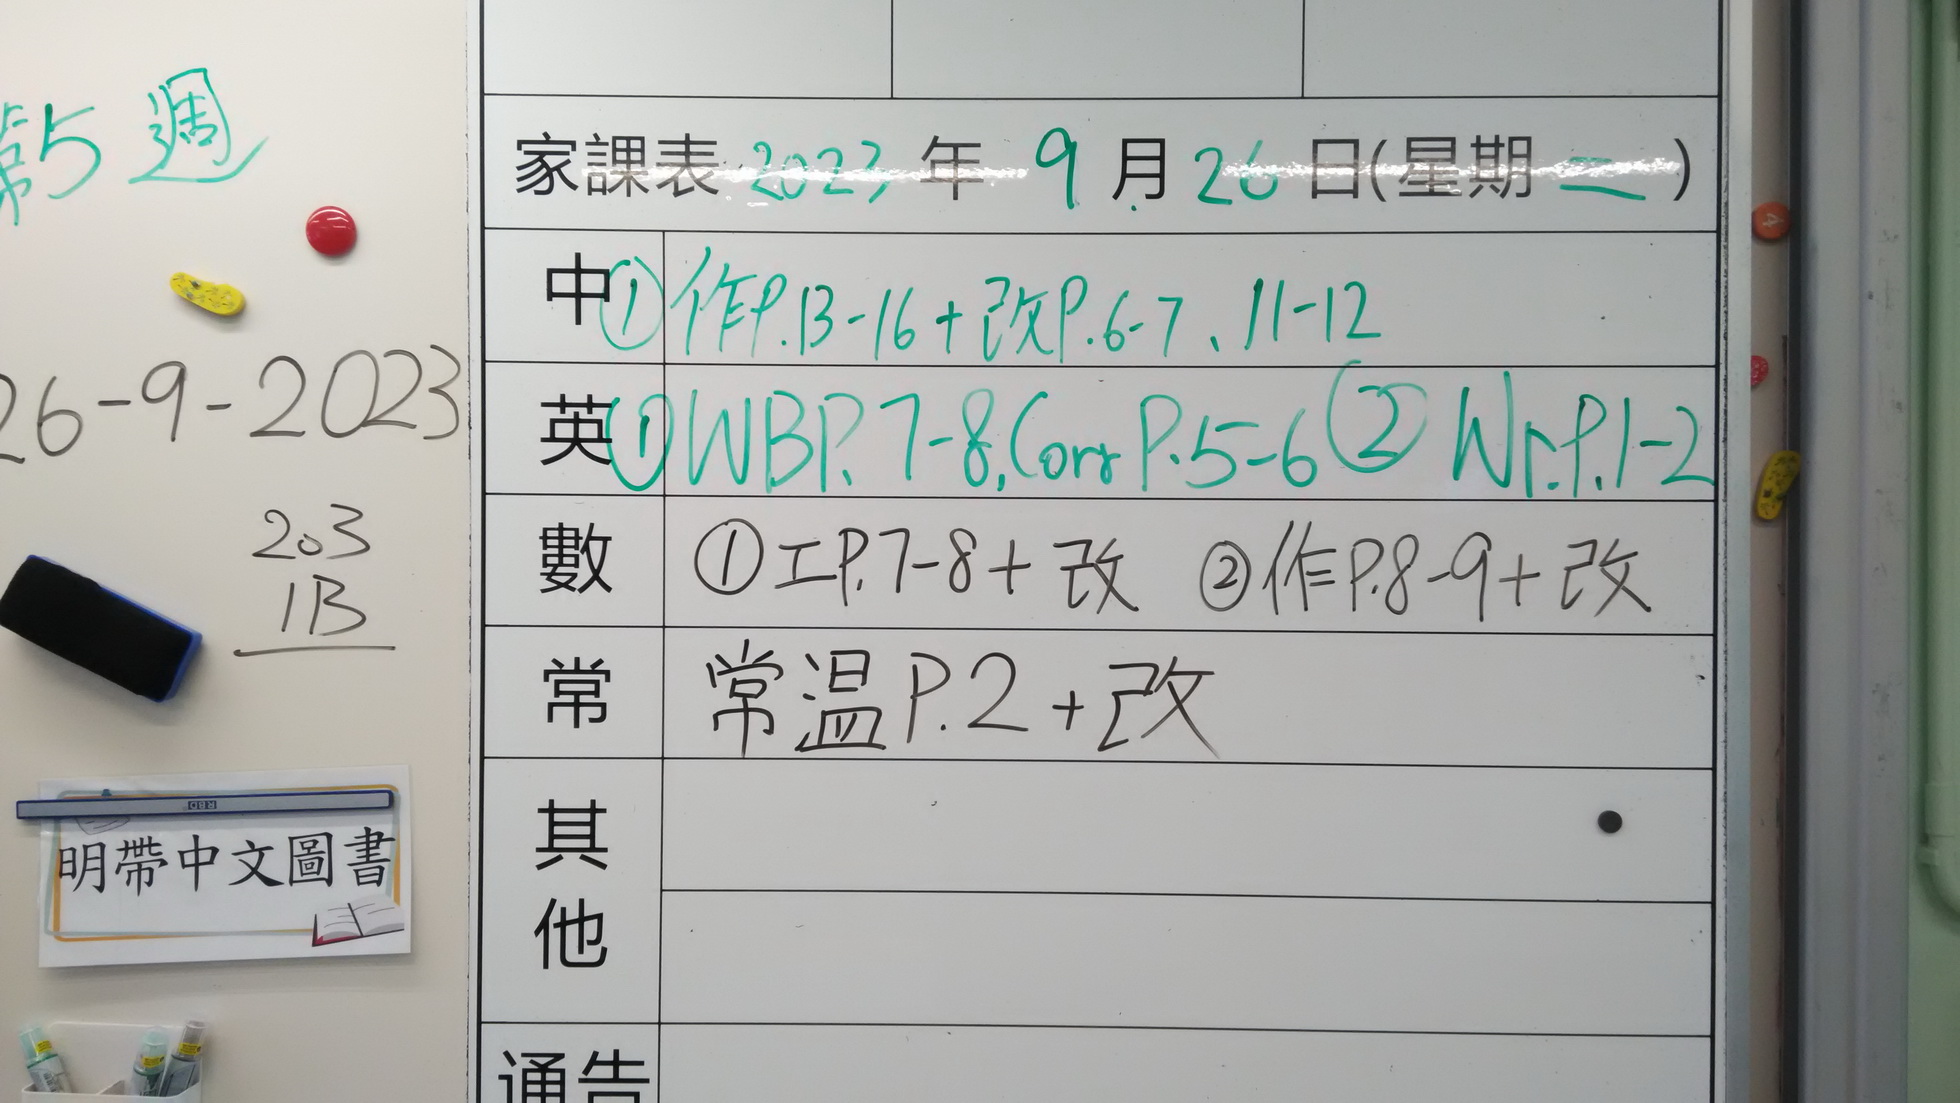 第5週
26-9-2023
203
1B
明帶中文圖書
家課表 2023 年 9 月 26 日(星期二)
中 ① 作P.13-16+改P.6-7、11-12
英 ① WBP. 7-8, Corr P.5-6 ② Wr.P.1-2
數 ① 工P.7-8+改 ② 作P.8-9+改
常 常溫P.2+改
其他
通告